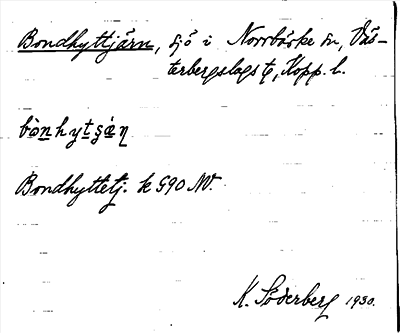 Bondhyttjärn, sjö i Norrbärke sn, Väs-
terbergslags t, Kopp. l.
bònhytşä̀ɳ
Bondhyttetj. k G90 NV.
K. Söderberg 1930.